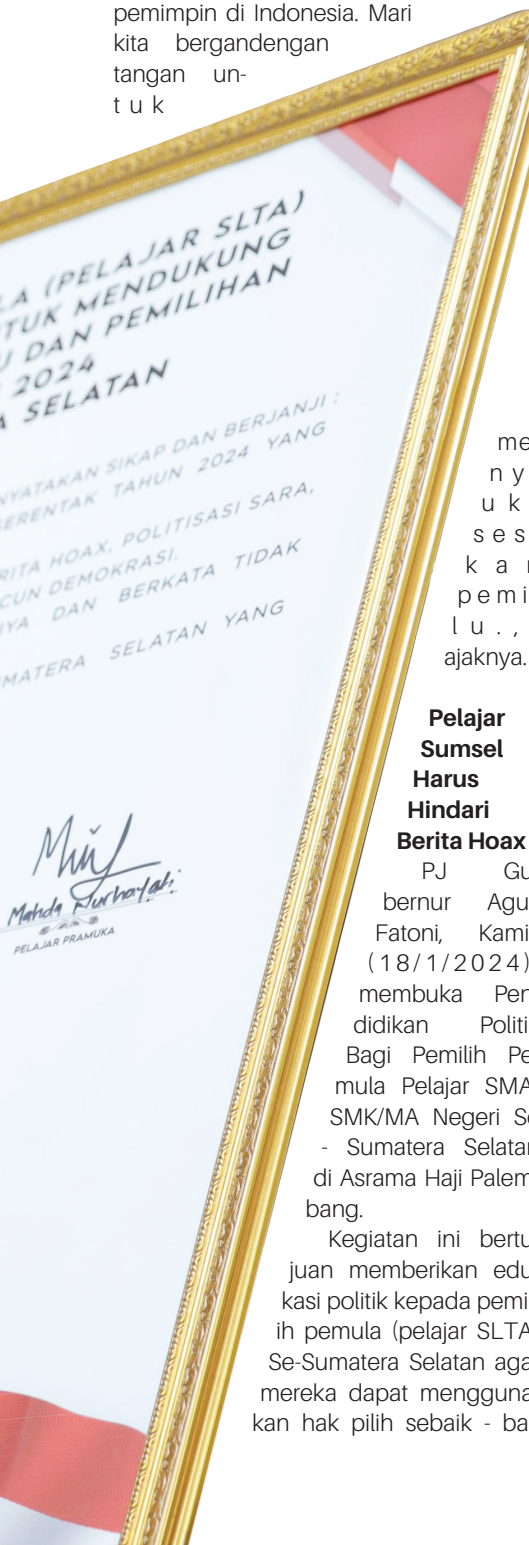 pemimpin di Indonesia. Mari
kita bergandengan
tangan un-
tuk
LA (PELAJAR SLTA)
TUK MENDUKUNG
U DAN PEMILIHAN
2024
A SELATAN
NYATAKAN SIKAP DAN BERJANJI :
SERENTAK TAHUN 2024 YANG
RITA HOAX, POLITISASI SARA,
CUN DEMOKRASI.
NYA DAN BERKATA TIDAK
MATERA SELATAN YANG
Mahda Nurhayati
PELAJAR PRAMUKA
me
ny
uk
ses
kan
pemi
lu.,
ajaknya.
Pelajar
Sumsel
Harus
Hindari
Berita Hoax
PJ Gu
bernur Agu
Fatoni, Kami
(18/1/2024)
membuka Pen
didikan Politi
Bagi Pemilih Pe
mula Pelajar SMA
SMK/MA Negeri Se
- Sumatera Selatan
di Asrama Haji Palem
bang.
Kegiatan ini bertu
juan memberikan edu
kasi politik kepada pemi
ih pemula (pelajar SLTA
Se-Sumatera Selatan aga
mereka dapat mengguna
kan hak pilih sebaik - ba